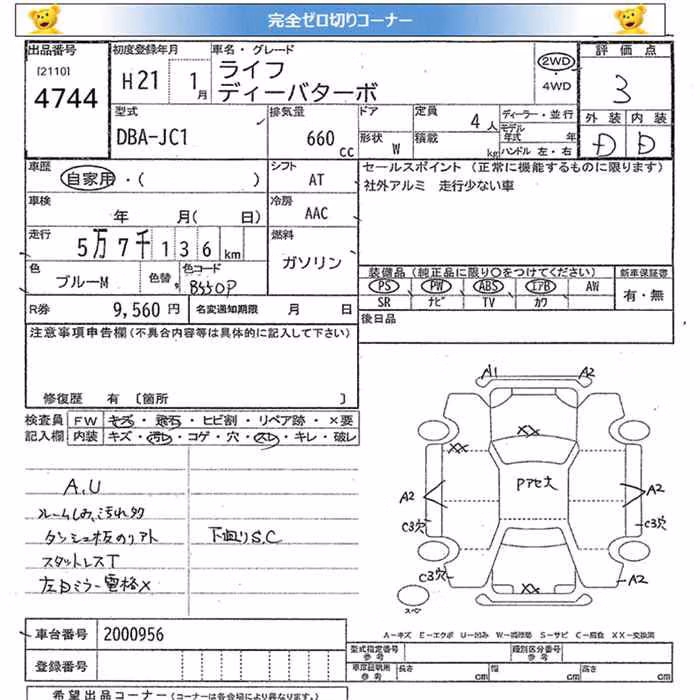 完全ゼロ切りコーナー
出品番号 [2110] 4744
初度登録年月 H21 1月
車名・グレード ライフ ディーバターボ
2WD・4WD
評価点 3
外装 D 内装 D
型式 DBA-JC1
排気量 660cc
ドア
形状 W
定員 4人
積載 kg
ディーラー・並行
モデル年式 年
ハンドル 左・右
車歴 自家用・( )
シフト AT
セールスポイント (正常に機能するものに限ります)
社外アルミ 走行少ない車
車検 年 月( 日)
冷房 AAC
走行 5万7千136km
燃料 ガソリン
色 ブルーM 色替 色コード B550P
装備品(純正品に限り○をつけてください)
PS PW ABS エアB AW
SR ナビ TV カワ
新車保証書 有・無
R券 9,560円 名変通知期限 月 日
後日品
注意事項申告欄(不具合内容等は具体的に記入して下さい)
修復歴 有 [箇所 ]
検査員記入欄
FW キズ・飛石・ヒビ割・リペア跡・×要
内装 キズ・汚レ・コゲ・穴・スレ・キレ・破レ
A,U
ルームしみ、汚れ多
タンシュ板のリアト
スタットレスT
左日ミラー電格×
下回りS.C
A1 A2
XX
XX
Pアセ大
A2 A2
C3穴 C3穴
C3穴 XX A2
スペア
A-キズ E-エクボ U-凹み W-補修跡 S-サビ C-腐食 XX-交換済
車台番号 2000956
登録番号
型式指定番号 参考
類別区分番号 参考
車庫証明用 参考 長さ cm 幅 cm 高さ cm
希望出品コーナー(コーナーは各会場により異なります。)